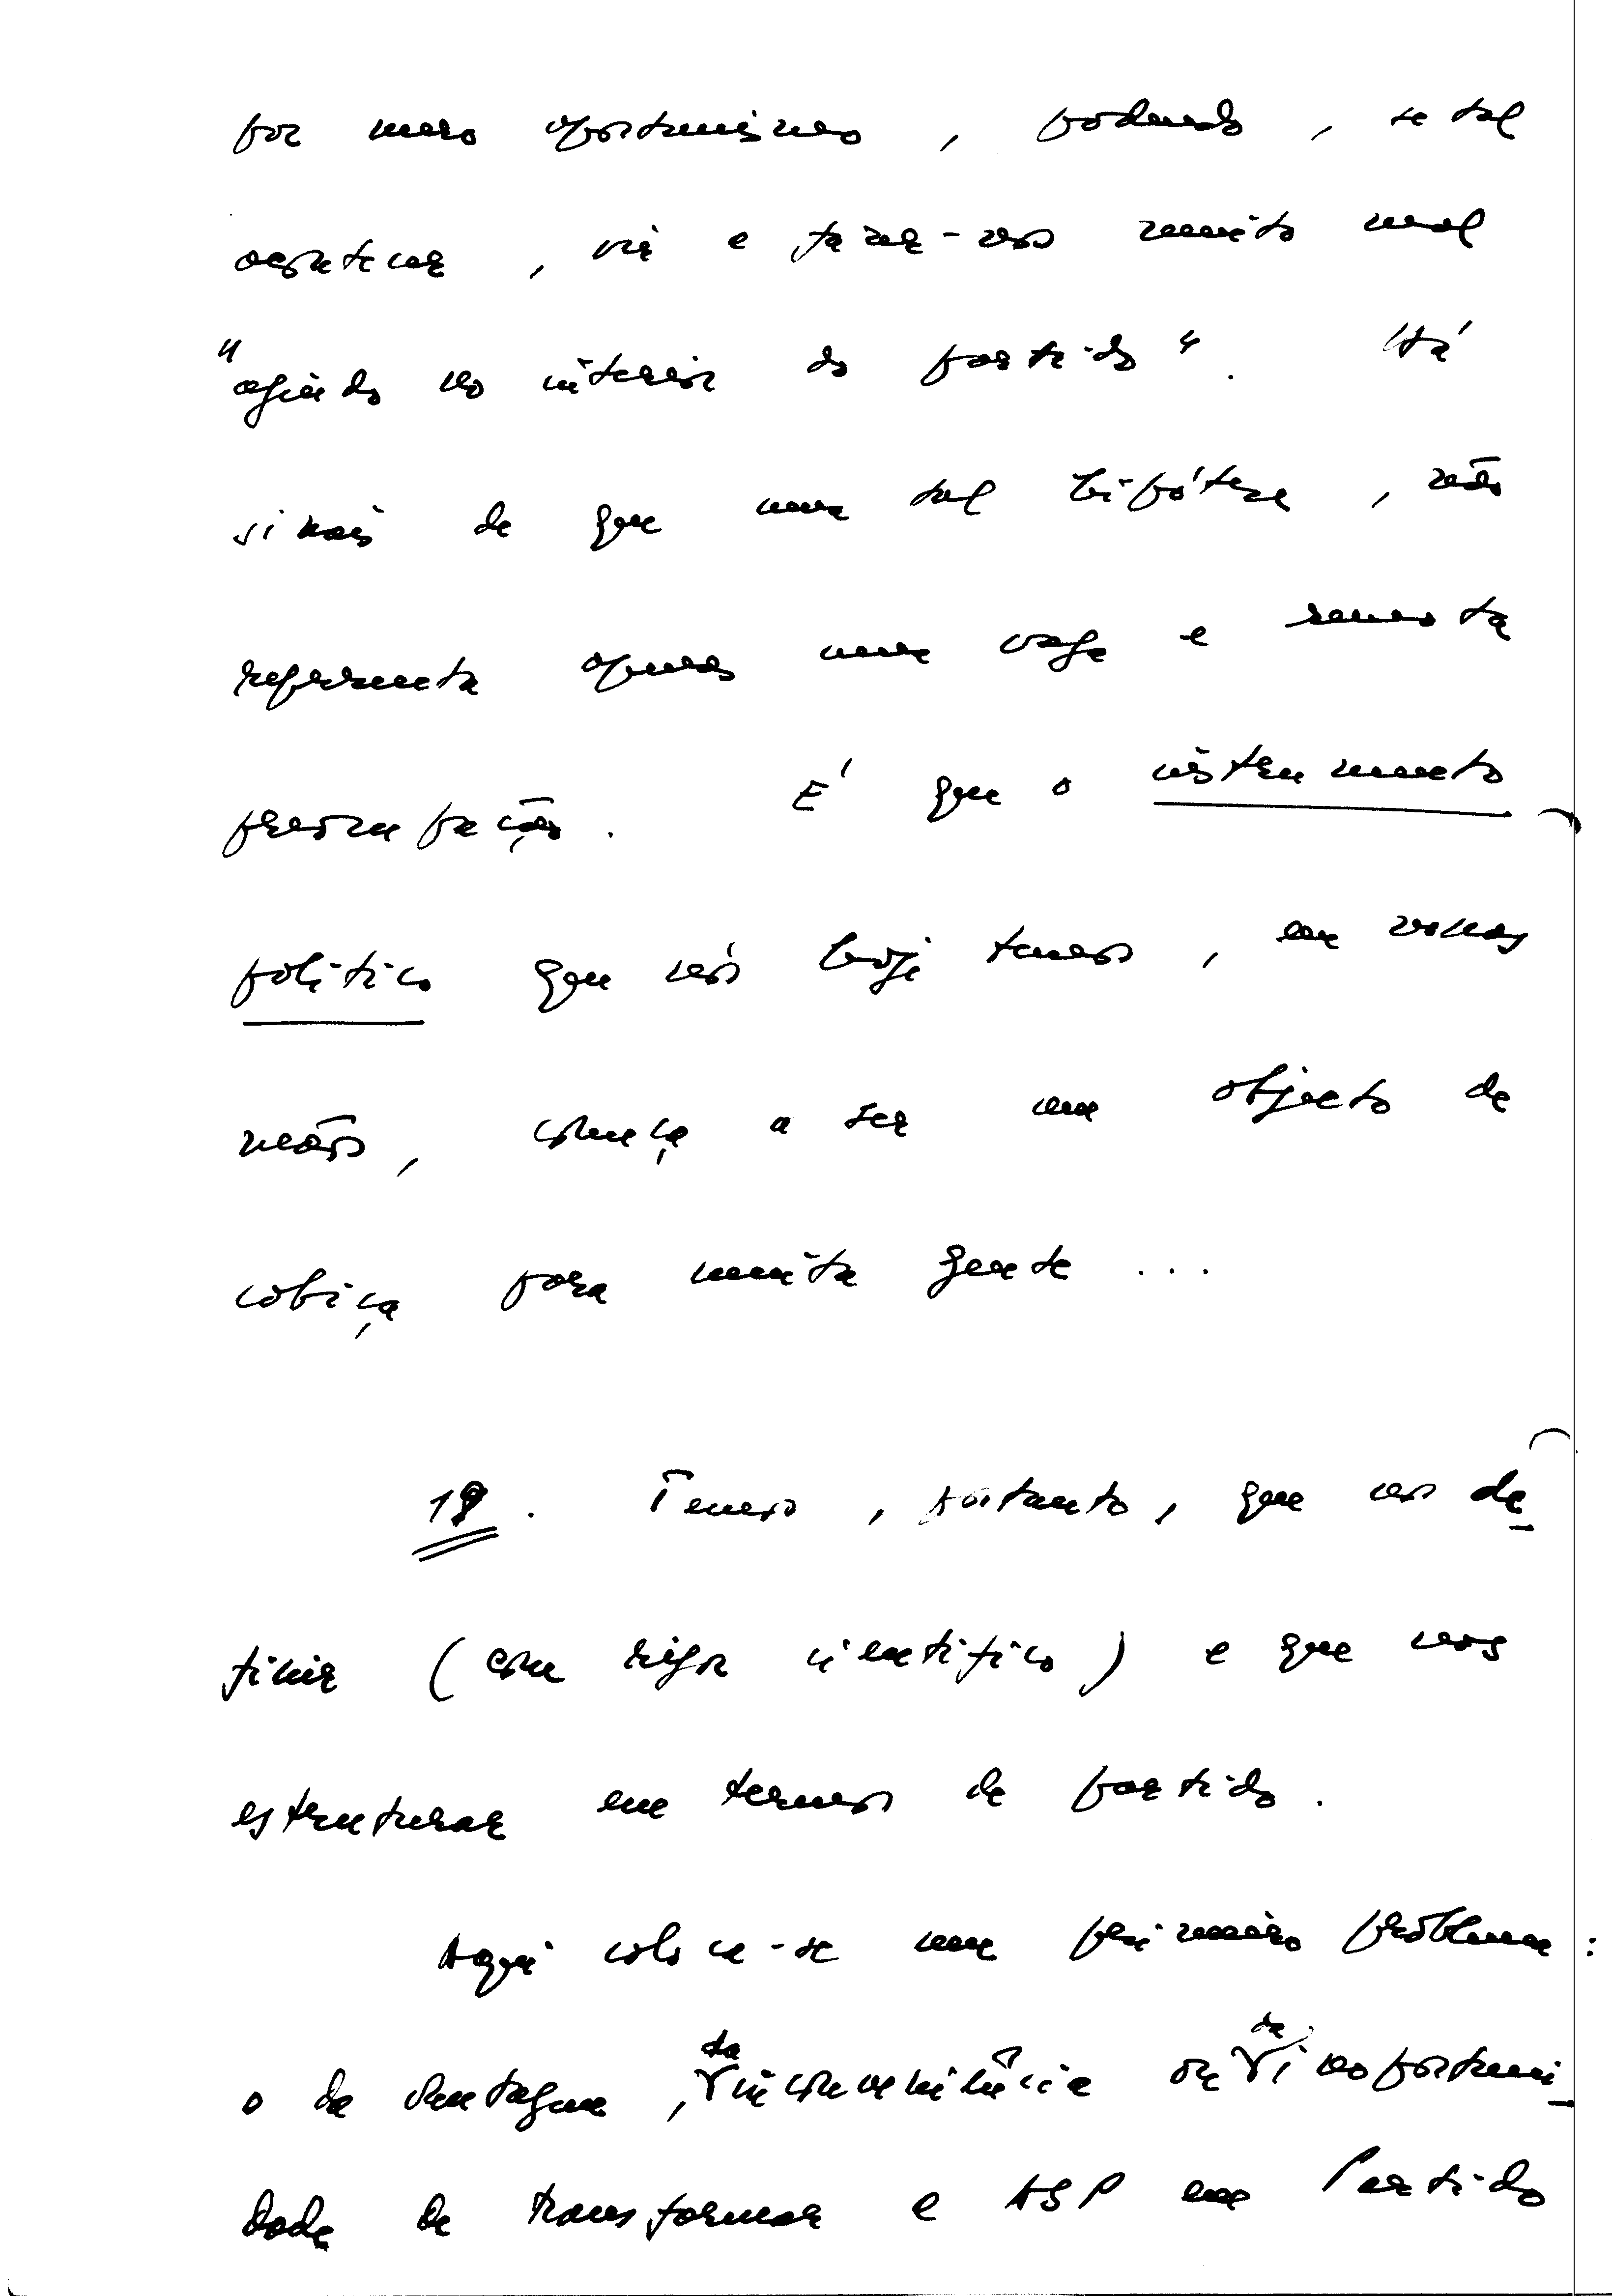 por mero oportunismo, podendo, se tal
acontecer, vir a fazer-nos muito mal
"agindo no interior do partido". Há
sinais de que uma tal hipótese, não
representa apenas uma vaga e remota
preocupação. É que o instrumento
político que nós hoje temos, em nossas
mãos, começa a ser um objecto de
cobiça para muita gente ...
19. Temos, portanto, que nos de-
finir (com rigor científico) e que nos
estruturar em termos de partido.
Aqui coloca-se um primeiro problema:
o da vantagem, da inconveniência ou da inoportuni-
dade de transformar a ASP em Partido